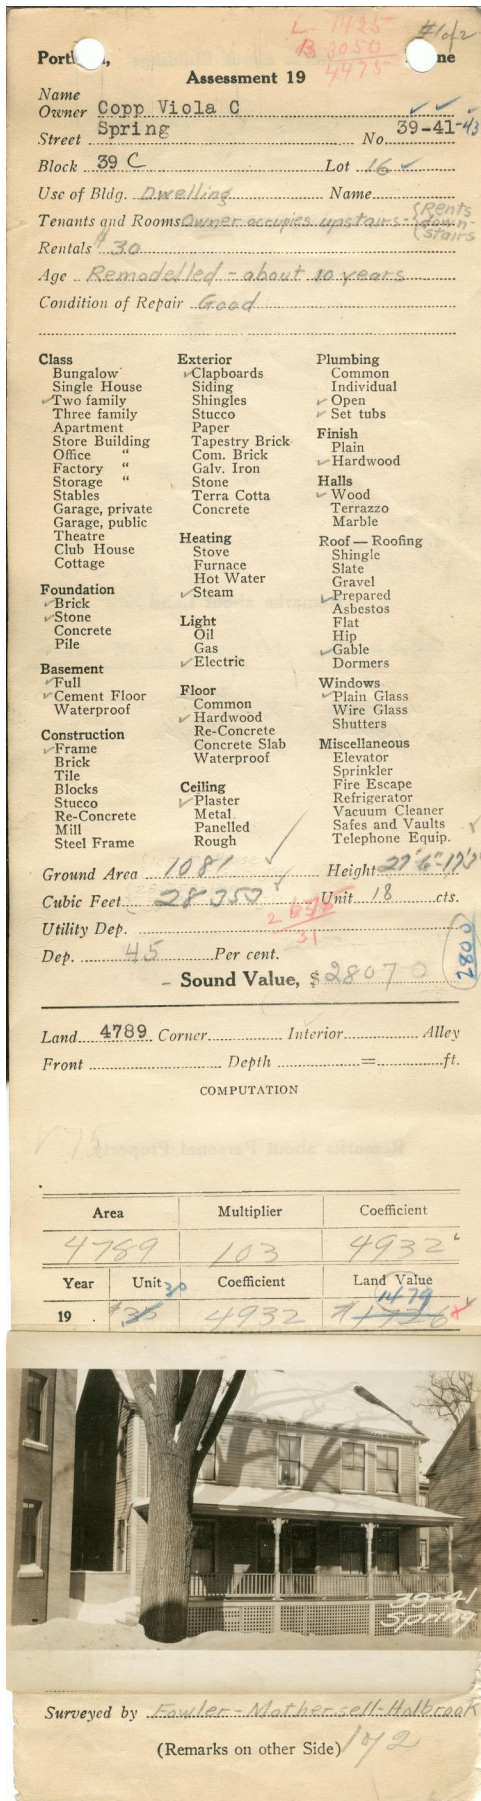 L. 1425
B 3050
4475
#1 of 2
Portl , ne
Assessment 19
Name
Owner Copp Viola C
Street Spring No. 39-41-43
Block 39 C Lot 16 ✓
Use of Bldg. Dwelling Name
Tenants and Rooms Owner occupies upstairs - {Rents down stairs
Rentals $30
Age Remodelled - about 10 years
Condition of Repair Good
Class
Bungalow
Single House
✓Two family
Three family
Apartment
Store Building
Office "
Factory "
Storage "
Stables
Garage, private
Garage, public
Theatre
Club House
Cottage
Foundation
✓Brick
✓Stone
Concrete
Pile
Basement
✓Full
✓Cement Floor
Waterproof
Construction
✓Frame
Brick
Tile
Blocks
Stucco
Re-Concrete
Mill
Steel Frame
Exterior
✓Clapboards
Siding
Shingles
Stucco
Paper
Tapestry Brick
Com. Brick
Galv. Iron
Stone
Terra Cotta
Concrete
Heating
Stove
Furnace
Hot Water
✓Steam
Light
Oil
Gas
✓Electric
Floor
Common
✓Hardwood
Re-Concrete
Concrete Slab
Waterproof
Ceiling
✓Plaster
Metal
Panelled
Rough
Plumbing
Common
Individual
✓Open
✓Set tubs
Finish
Plain
✓Hardwood
Halls
✓Wood
Terrazzo
Marble
Roof — Roofing
Shingle
Slate
Gravel
✓Prepared
Asbestos
Flat
Hip
✓Gable
Dormers
Windows
✓Plain Glass
Wire Glass
Shutters
Miscellaneous
Elevator
Sprinkler
Fire Escape
Refrigerator
Vacuum Cleaner
Safes and Vaults
Telephone Equip.
Ground Area 1081 ✓ Height
Cubic Feet 28350 ✓ Unit 18 cts.
31
Utility Dep.
Dep. 45 Per cent.
2800
Sound Value, $2807 0
Land 4789 Corner Interior Alley
Front Depth = ft.
COMPUTATION
Area Multiplier Coefficient
4789 103 4932
Year Unit 30 Coefficient Land Value
1479
19 $35 4932 $1726
39-41
Spring
Surveyed by Fowler-Mothersell-Holbrook
(Remarks on other Side) 1 of 2